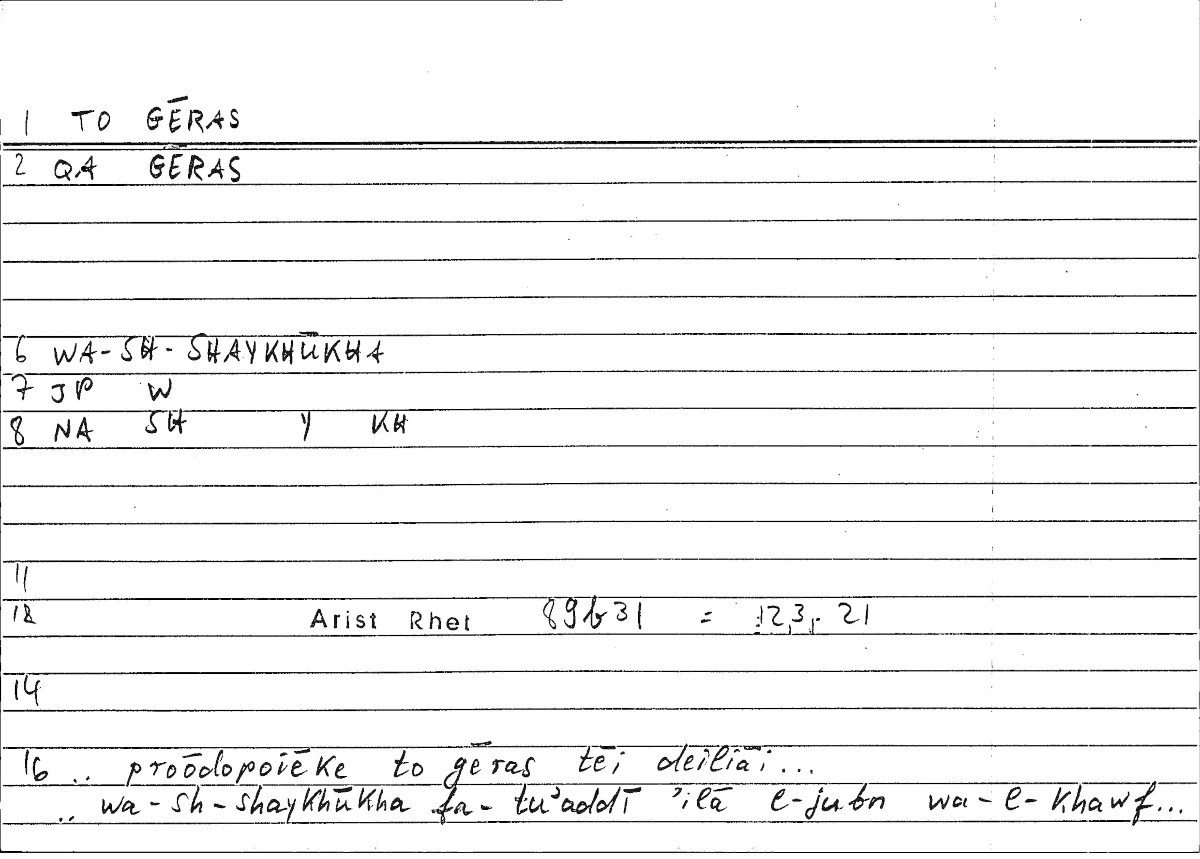 1 TO GĒRAS
2 QA GĒRAS
6 WA-SH-SHAYKHŪKHA
7 JP W
8 NA SH Y KH
11
12 Arist Rhet 89b31 = 123, 21
14
16 .. proōdopoiēke to gēras tēi deiliāi...
.. wa-sh-shaykhūkha fa-tuʾaddī ʾilā l-jubn wa-l-khawf...